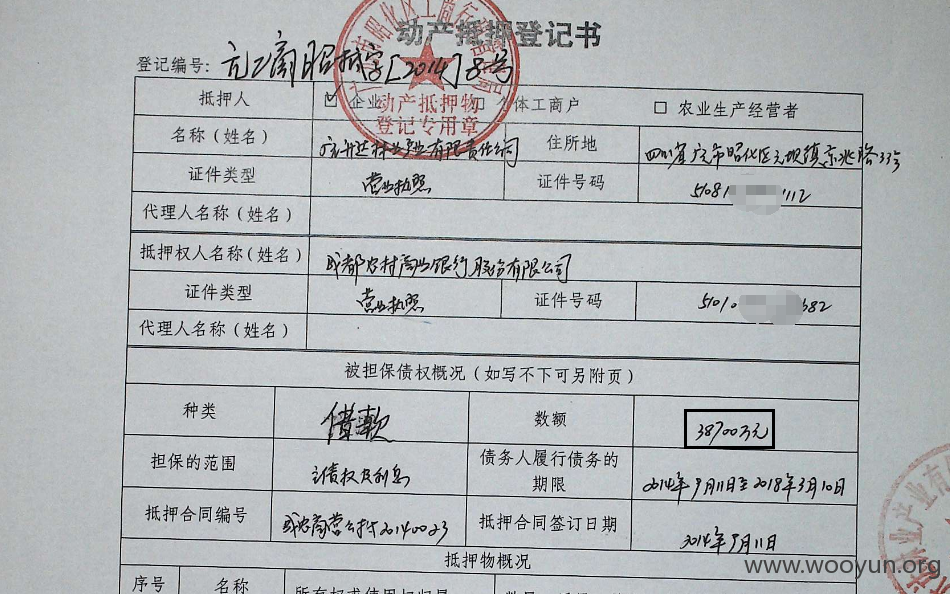 动产抵押登记书
登记编号: 广工商昭抵字[2014]8号
动产抵押物
登记专用章
抵押人 ☑ 企业 □ 个体工商户 □ 农业生产经营者
名称（姓名） 林业有限责任公司 住所地 四川省广元市昭化区元坝镇京兆路33号
证件类型 营业执照 证件号码 5108 112
代理人名称（姓名）
抵押权人名称（姓名） 成都农村商业银行股份有限公司
证件类型 营业执照 证件号码 51010 682
代理人名称（姓名）
被担保债权概况（如写不下可另附页）
种类 借款 数额 38700万元
担保的范围 主债权及利息 债务人履行债务的期限 2014年9月11日至2018年3月10日
抵押合同编号 成农商营公抵20140023 抵押合同签订日期 2014年9月11日
抵押物概况
序号 名称
www.wooyun.org